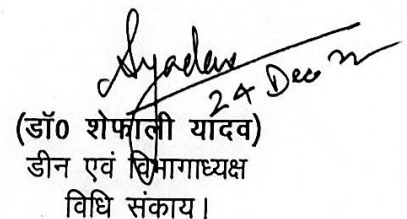 Syadav
24 Dec
(डॉ0 शेफाली यादव)
डीन एवं विभागाध्यक्ष
विधि संकाय।